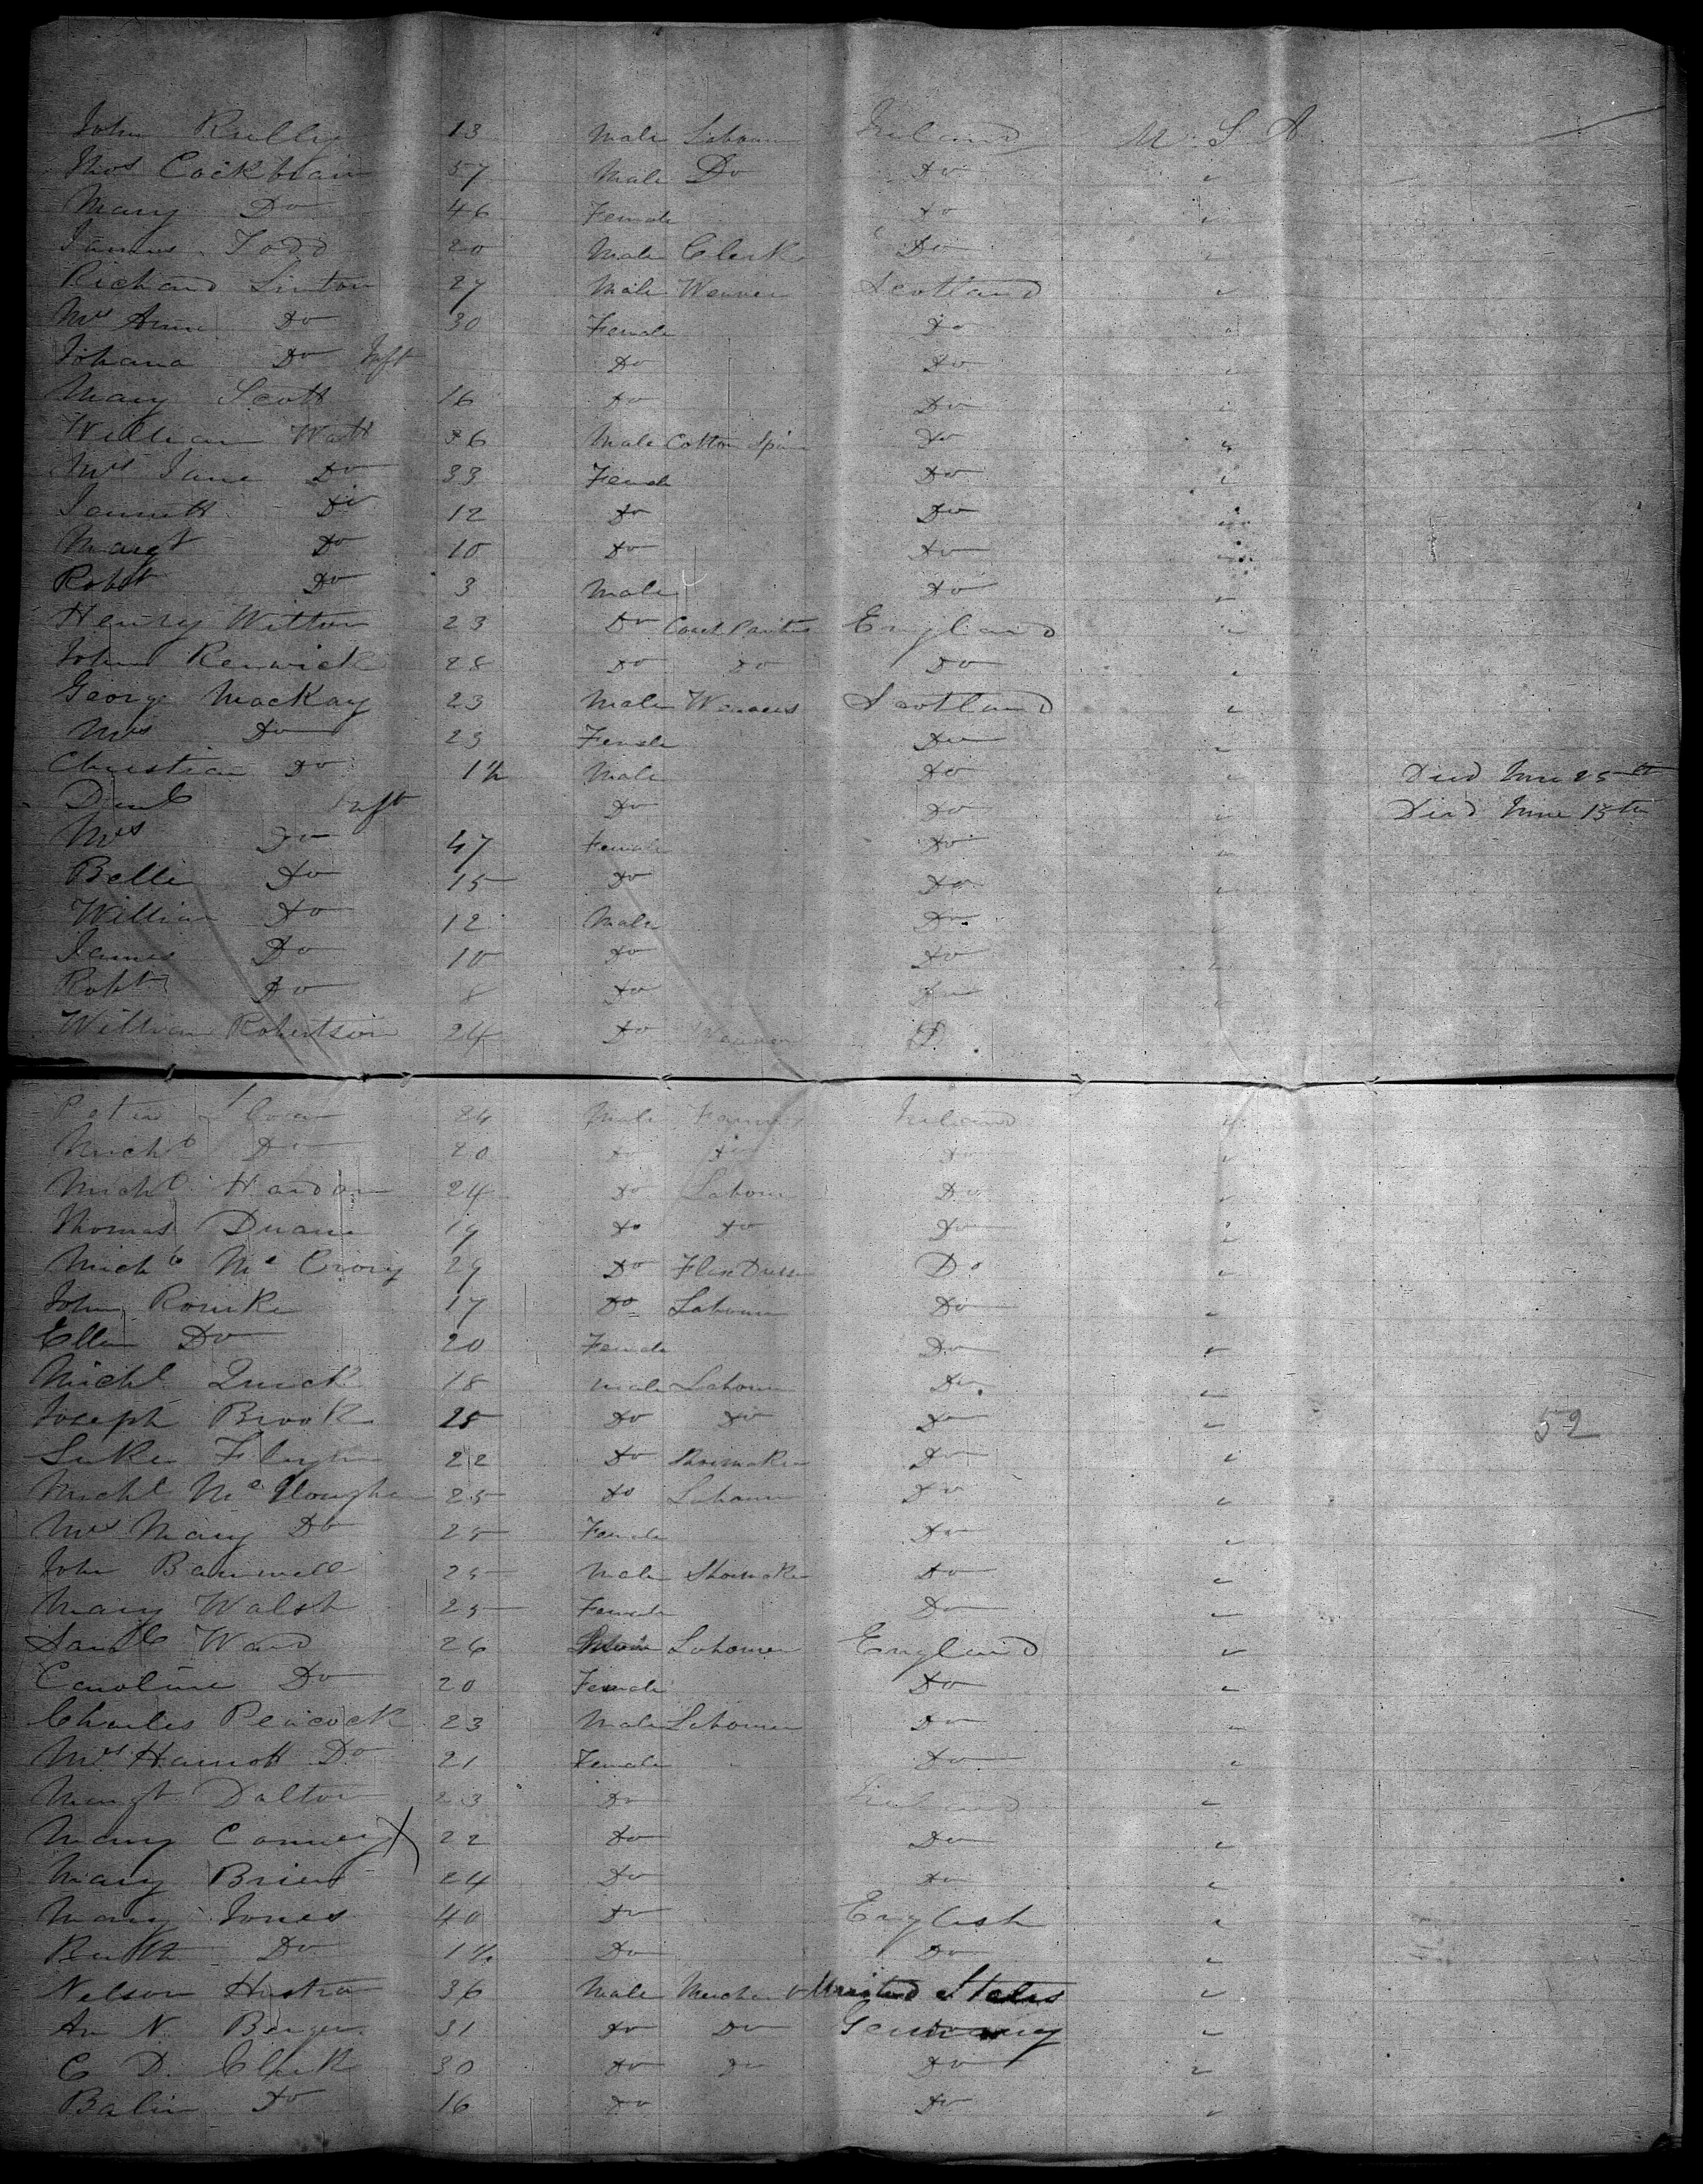 John Reilly 13 Male Labourer Ireland U. S. A.
Thos Cockbrain 57 Male Do Do "
Mary Do 46 Female Do "
James Todd 20 Male Clerk Do "
Richard Linton 27 Male Weaver Scotland "
Mrs Ann Do 30 Female Do "
Johana Do Inft Do Do "
Mary Scott 16 Do Do "
William Watt 36 Male Cotton Spin Do "
Mrs Jane Do 33 Female Do "
Jennett Do 12 Do Do "
Margt Do 10 Do Do "
Robt Do 3 Male Do "
Henry Witton 23 Do England "
John Renwick 28 Do Do Do "
George MacKay 23 Male Weavers Scotland "
Mrs Do 23 Female Do "
Christian Do 1½ Male Do " Died June 25th
Danl Inft Do Do " Died June 15th
Mrs Do 47 Female Do "
Belle Do 15 Do Do "
William Do 12 Male Do "
James Do 10 Do Do "
Robt Do 8 Do Do "
William Robertson 24 Do Weaver D
Peter 24 Male Farmer Ireland "
Michl Do 20 Do Do Do "
Michl 24 Do Labourer Do "
Thomas Duane 19 Do Do Do "
Michl Mc Crory 29 Do Flax Dresser Do "
John Rourke 17 Do Labourer Do "
Ellen Do 20 Female Do "
Michl Quick 18 Male Labourer Do "
Joseph Brook 25 Do Do Do " 52
Luke Flynn 22 Do Shoemaker Do "
Michl Mc 25 Do Labourer Do "
Mrs Mary Do 25 Female Do "
John Barnwell 25 Male Shoemaker Do "
Mary Walsh 23 Female Do "
Saml Ward 26 Labourer England "
Caroline Do 20 Female Do "
Charles Peacock 23 Male Labourer Do "
Mrs Harriott Do 21 Female Do "
Margt Dalton 23 Do Ireland "
Mary 22 Do Do "
Mary Brien 24 Do Do "
Mary Jones 40 Do English "
Do 1½ Do Do "
Nelson 36 Male Merchant United States "
N. Berger 31 Do Do Germany "
C D. Clark 30 Do Do Do "
Do 16 Do Do "